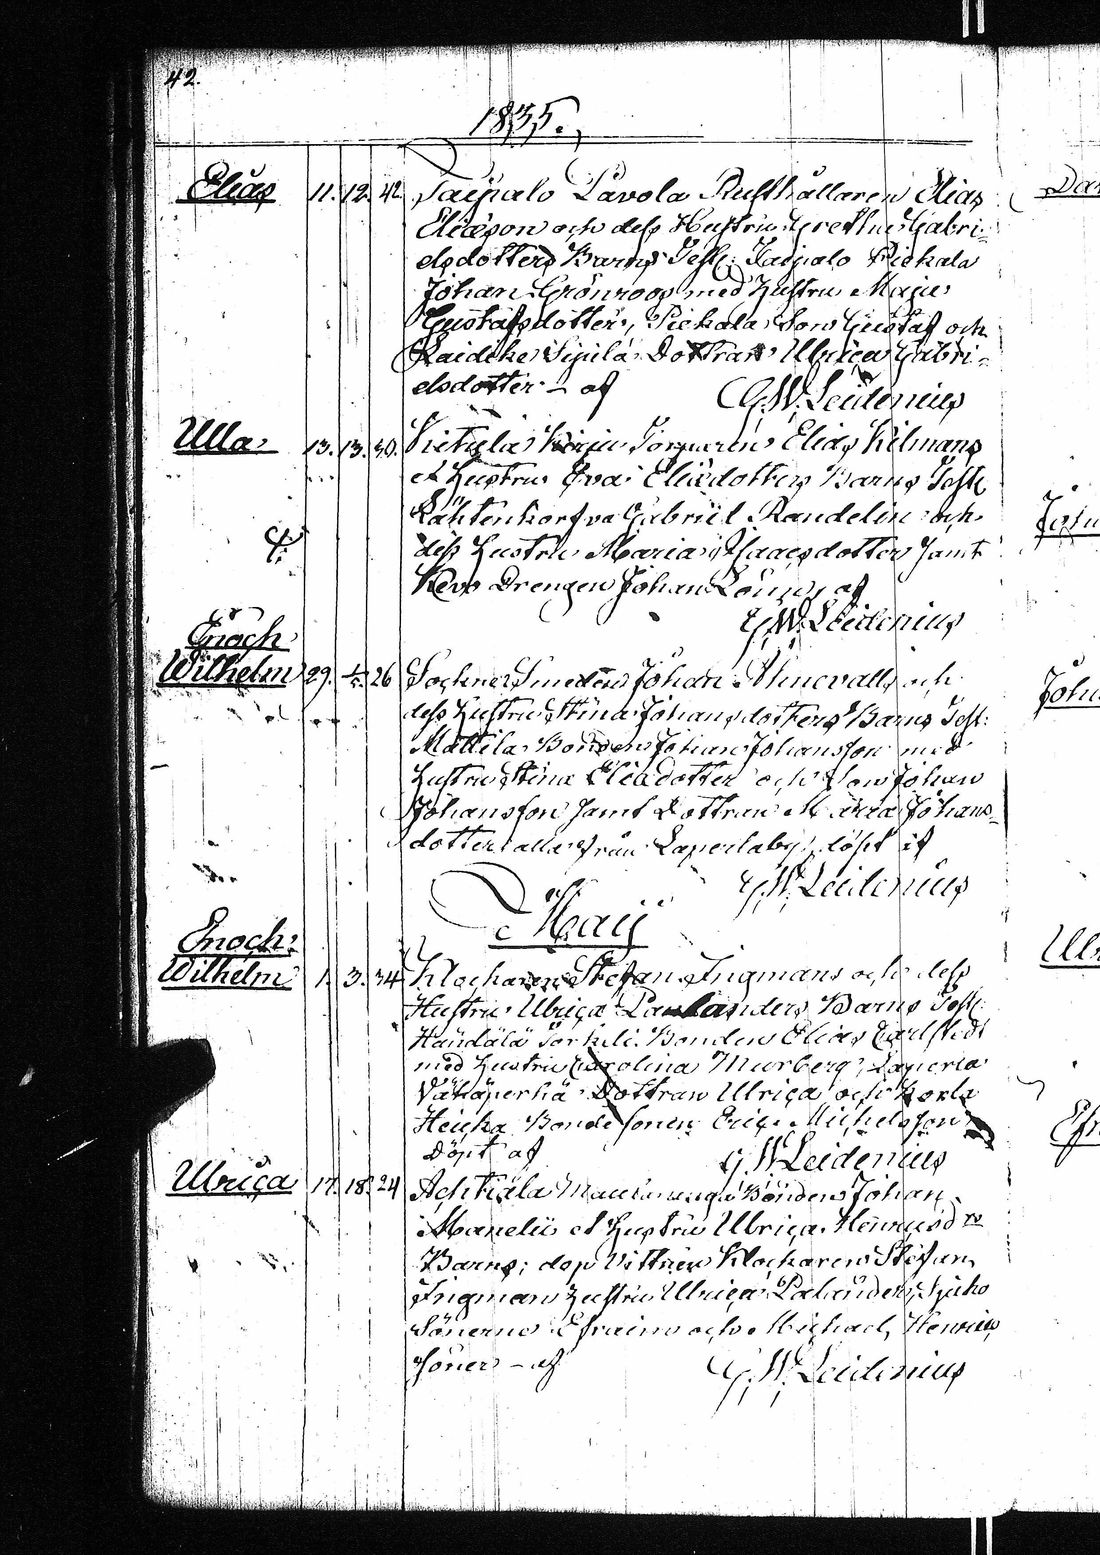 42.
1835.
Elias 11. 12. 42 Taipalo Pavola Rusthållaren Elias
Eliæson och dess Hustru Gretha Gabri-
elsdotters Barns Test: Taipalo Piekala
Johan Grönroos med Hustru Maja
Gustafsdotter, Piekala Son Gustaf och
Sipilä Dottran Ulrica Gabri-
elsdotter - af G. W. Leidenius
Ulla 13. 13. 30. Torparen Elias Kilmans
et Hustru Eva Eliædotters Barns Test
Lähtenkorfva Gabriel Randelin och
dess Hustru Maria Isaacsdotter samt
Drengen Johan af
G. W. Leidenius
Enoch
Wilhelm 29. 1/5. 26 Sockne Smeden Johan och
dess Hustru Stina Johansdotters Barns Test:
Mattila Bonden Johan Johansson med
Hustru Stina Eliædotter och Son Johan
Johansson samt Dottran Maria Johans-
dotter alla från Laperlaby, döpt af
G. W. Leidenius
Maij
Enoch
Wilhelm 1. 3. 34 Klockaren Stefan Ingmans och dess
Hustru Ulrica Palanders Barns Test:
Händälä Torkeli Bonden Elias Carlstedt
med Hustru Carolina Murberg, Laperla
Vähäperhä Dottran Ulrica och
Heicka Bonde sonen Eric Michelsson
Döpt af G. W. Leidenius
Ulrica 17. 18. 24 Bonden Johan
Manelii et Hustru Ulrica Henricsdrs
Barns; dop Vittnen Klockaren Stefan
Ingman Hustru Ulrica Palander,
Sönerne Efraim och Michael, Henrics
söner - af G. W. Leidenius